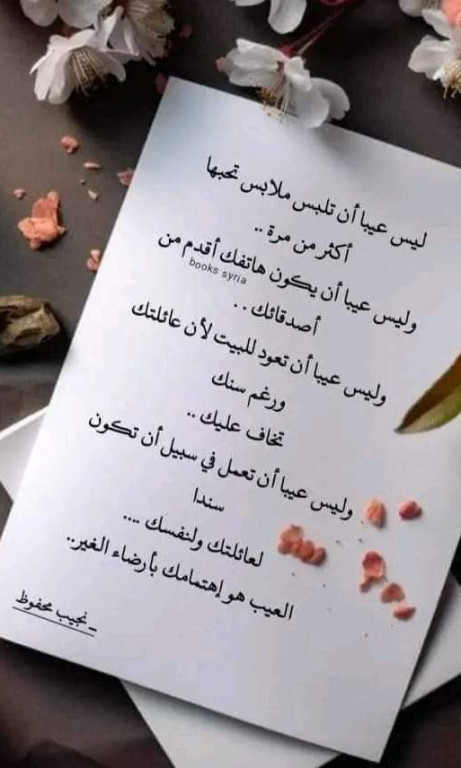 ليس عيبا أن تلبس ملابس تحبها
أكثر من مرة ..
وليس عيبا أن يكون هاتفك أقدم من
books syria
أصدقائك . .
وليس عيبا أن تعود للبيت لأن عائلتك
ورغم سنك
تخاف عليك ..
وليس عيبا أن تعمل في سبيل أن تكون
سندا
لعائلتك ولنفسك ....
العيب هو إهتمامك بأرضاء الغير..
_ نجيب محفوظ